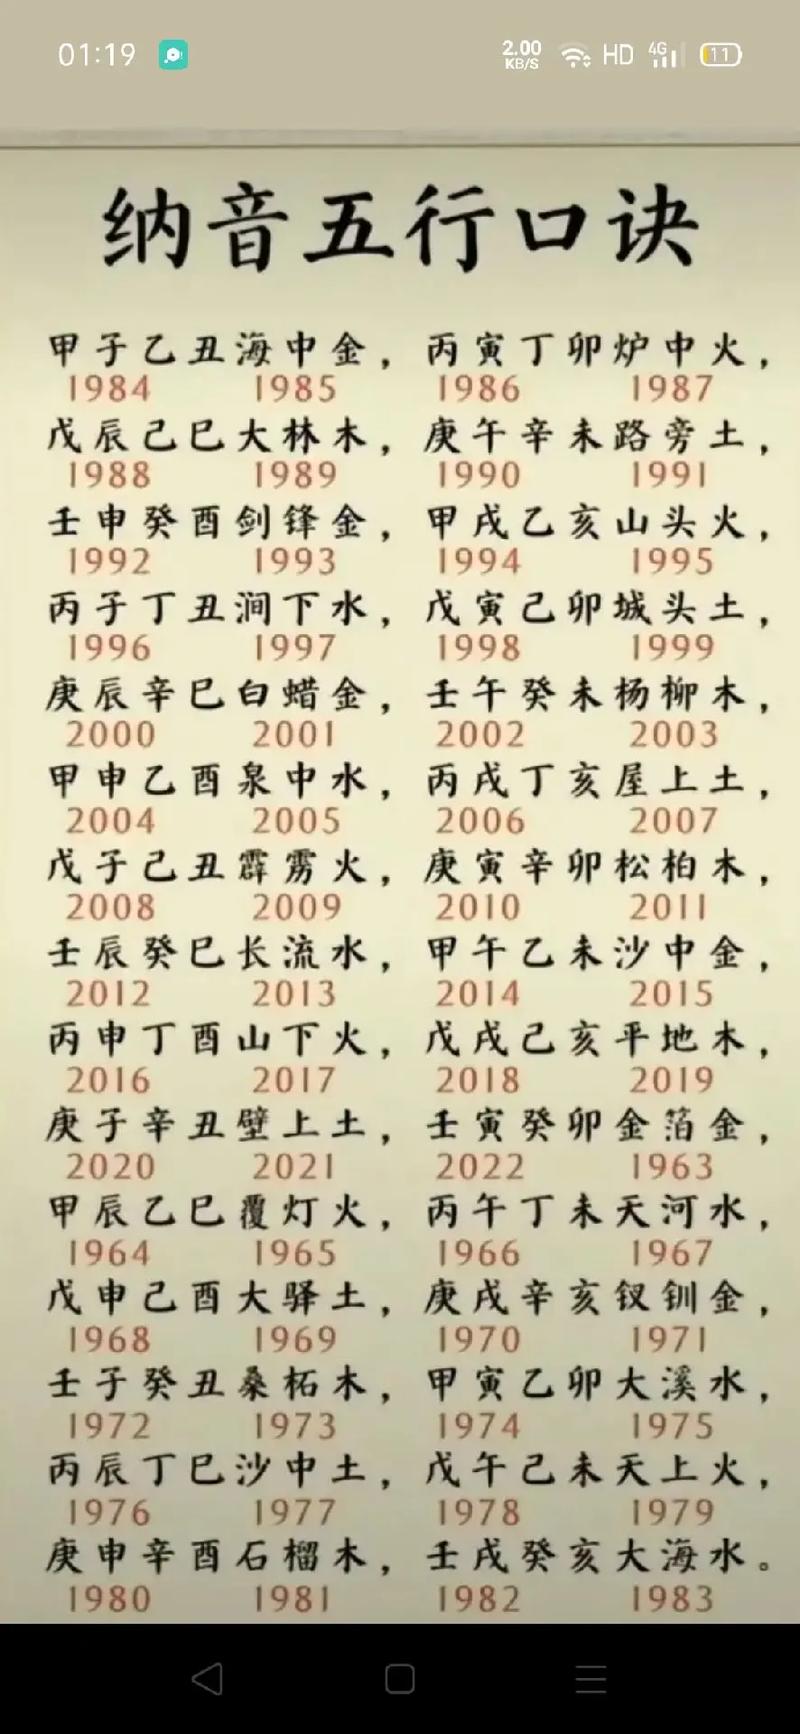 01:19 2.00 KB/S HD 4G 11
纳音五行口诀
甲子乙丑海中金，丙寅丁卯炉中火，
1984 1985 1986 1987
戊辰己巳大林木，庚午辛未路旁土，
1988 1989 1990 1991
壬申癸酉剑锋金，甲戌乙亥山头火，
1992 1993 1994 1995
丙子丁丑涧下水，戊寅己卯城头土，
1996 1997 1998 1999
庚辰辛巳白蜡金，壬午癸未杨柳木，
2000 2001 2002 2003
甲申乙酉泉中水，丙戌丁亥屋上土，
2004 2005 2006 2007
戊子己丑霹雳火，庚寅辛卯松柏木，
2008 2009 2010 2011
壬辰癸巳长流水，甲午乙未沙中金，
2012 2013 2014 2015
丙申丁酉山下火，戊戌己亥平地木，
2016 2017 2018 2019
庚子辛丑壁上土，壬寅癸卯金箔金，
2020 2021 2022 1963
甲辰乙巳覆灯火，丙午丁未天河水，
1964 1965 1966 1967
戊申己酉大驿土，庚戌辛亥钗钏金，
1968 1969 1970 1971
壬子癸丑桑柘木，甲寅乙卯大溪水，
1972 1973 1974 1975
丙辰丁巳沙中土，戊午己未天上火，
1976 1977 1978 1979
庚申辛酉石榴木，壬戌癸亥大海水。
1980 1981 1982 1983